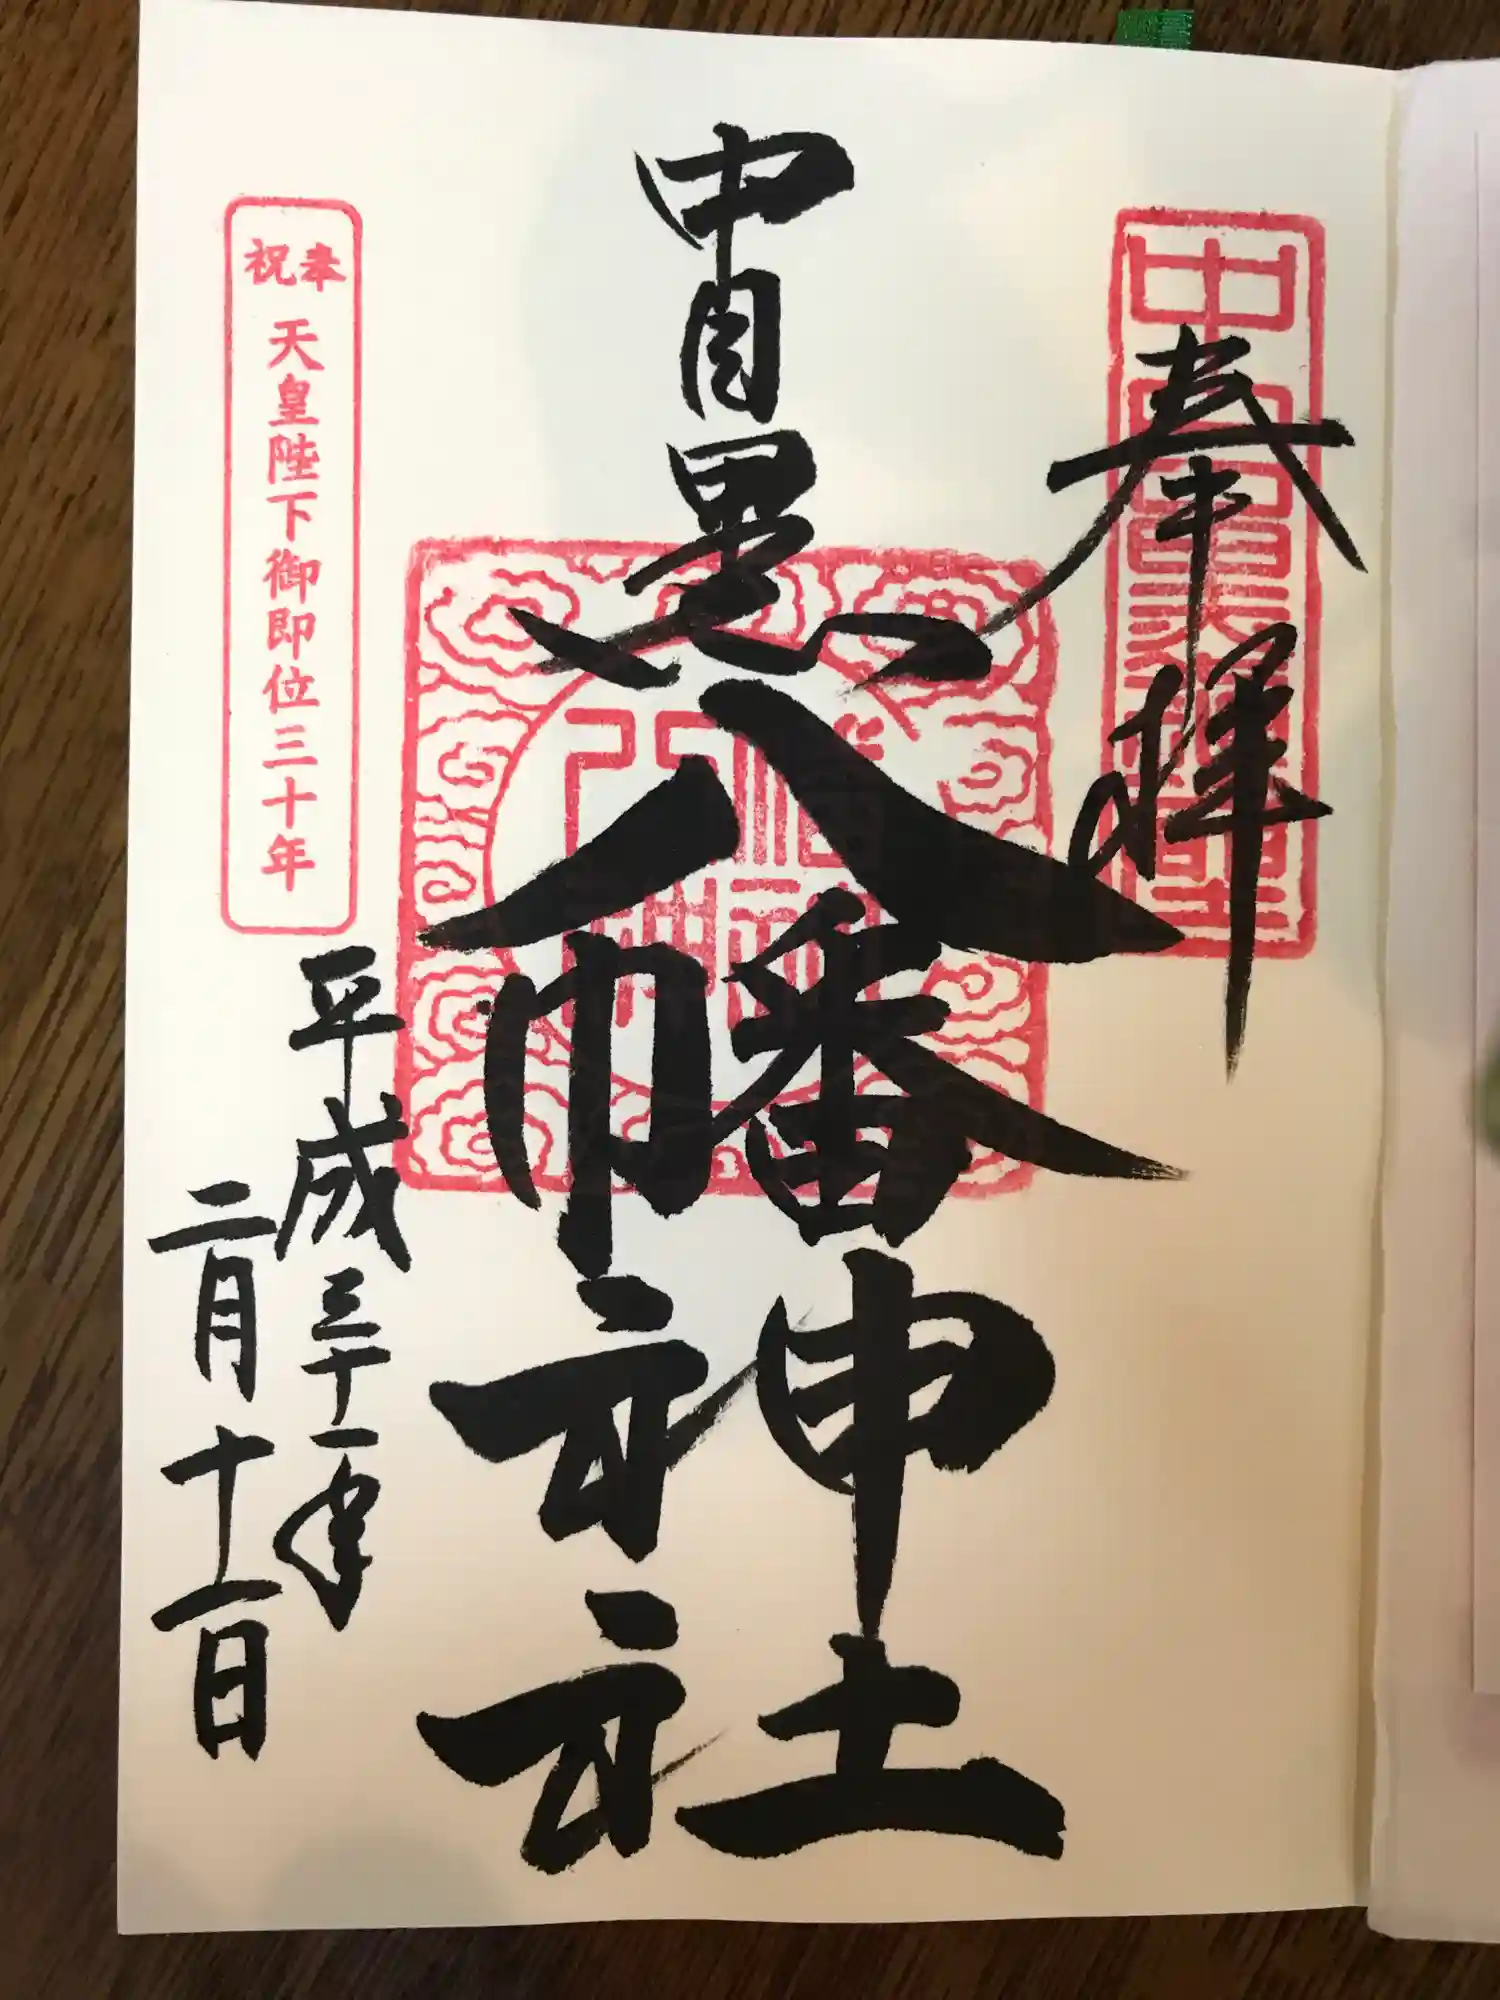 奉拝
中目黒八幡神社
平成三十一年
二月十一日
奉祝
天皇陛下御即位三十年